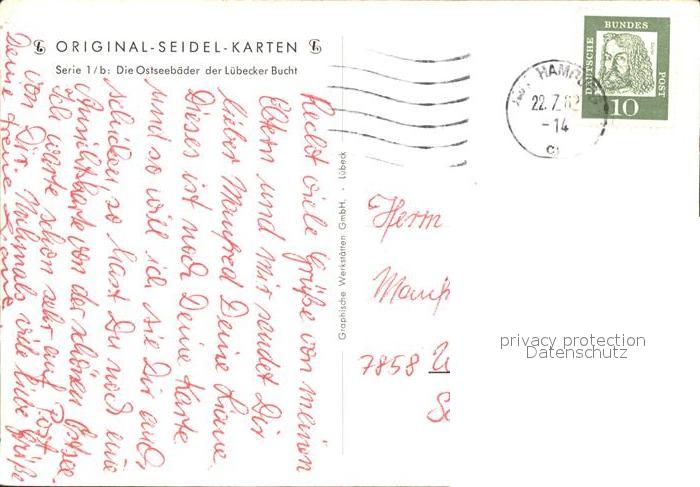 ORIGINAL-SEIDEL-KARTEN
Serie 1/b: Die Ostseebäder der Lübecker Bucht
Recht viele Grüße von meinen
Eltern und mir sendet Dir
lieber Manfred Deine Liane.
Dieses ist noch Deine Karte
und so will ich sie Dir auch
schicken so hast Du noch eine
Ansichtskarte von der schönen Ostsee.
Ich warte schon sehr auf Post
von Dir. Nochmals viele liebe Grüße
Deine Liane
Graphische Werkstätten GmbH. · Lübeck
DEUTSCHE
BUNDES
POST
10
HAMBURG
22.7.62
-14
Herrn
Manf
7858
privacy protection
Datenschutz